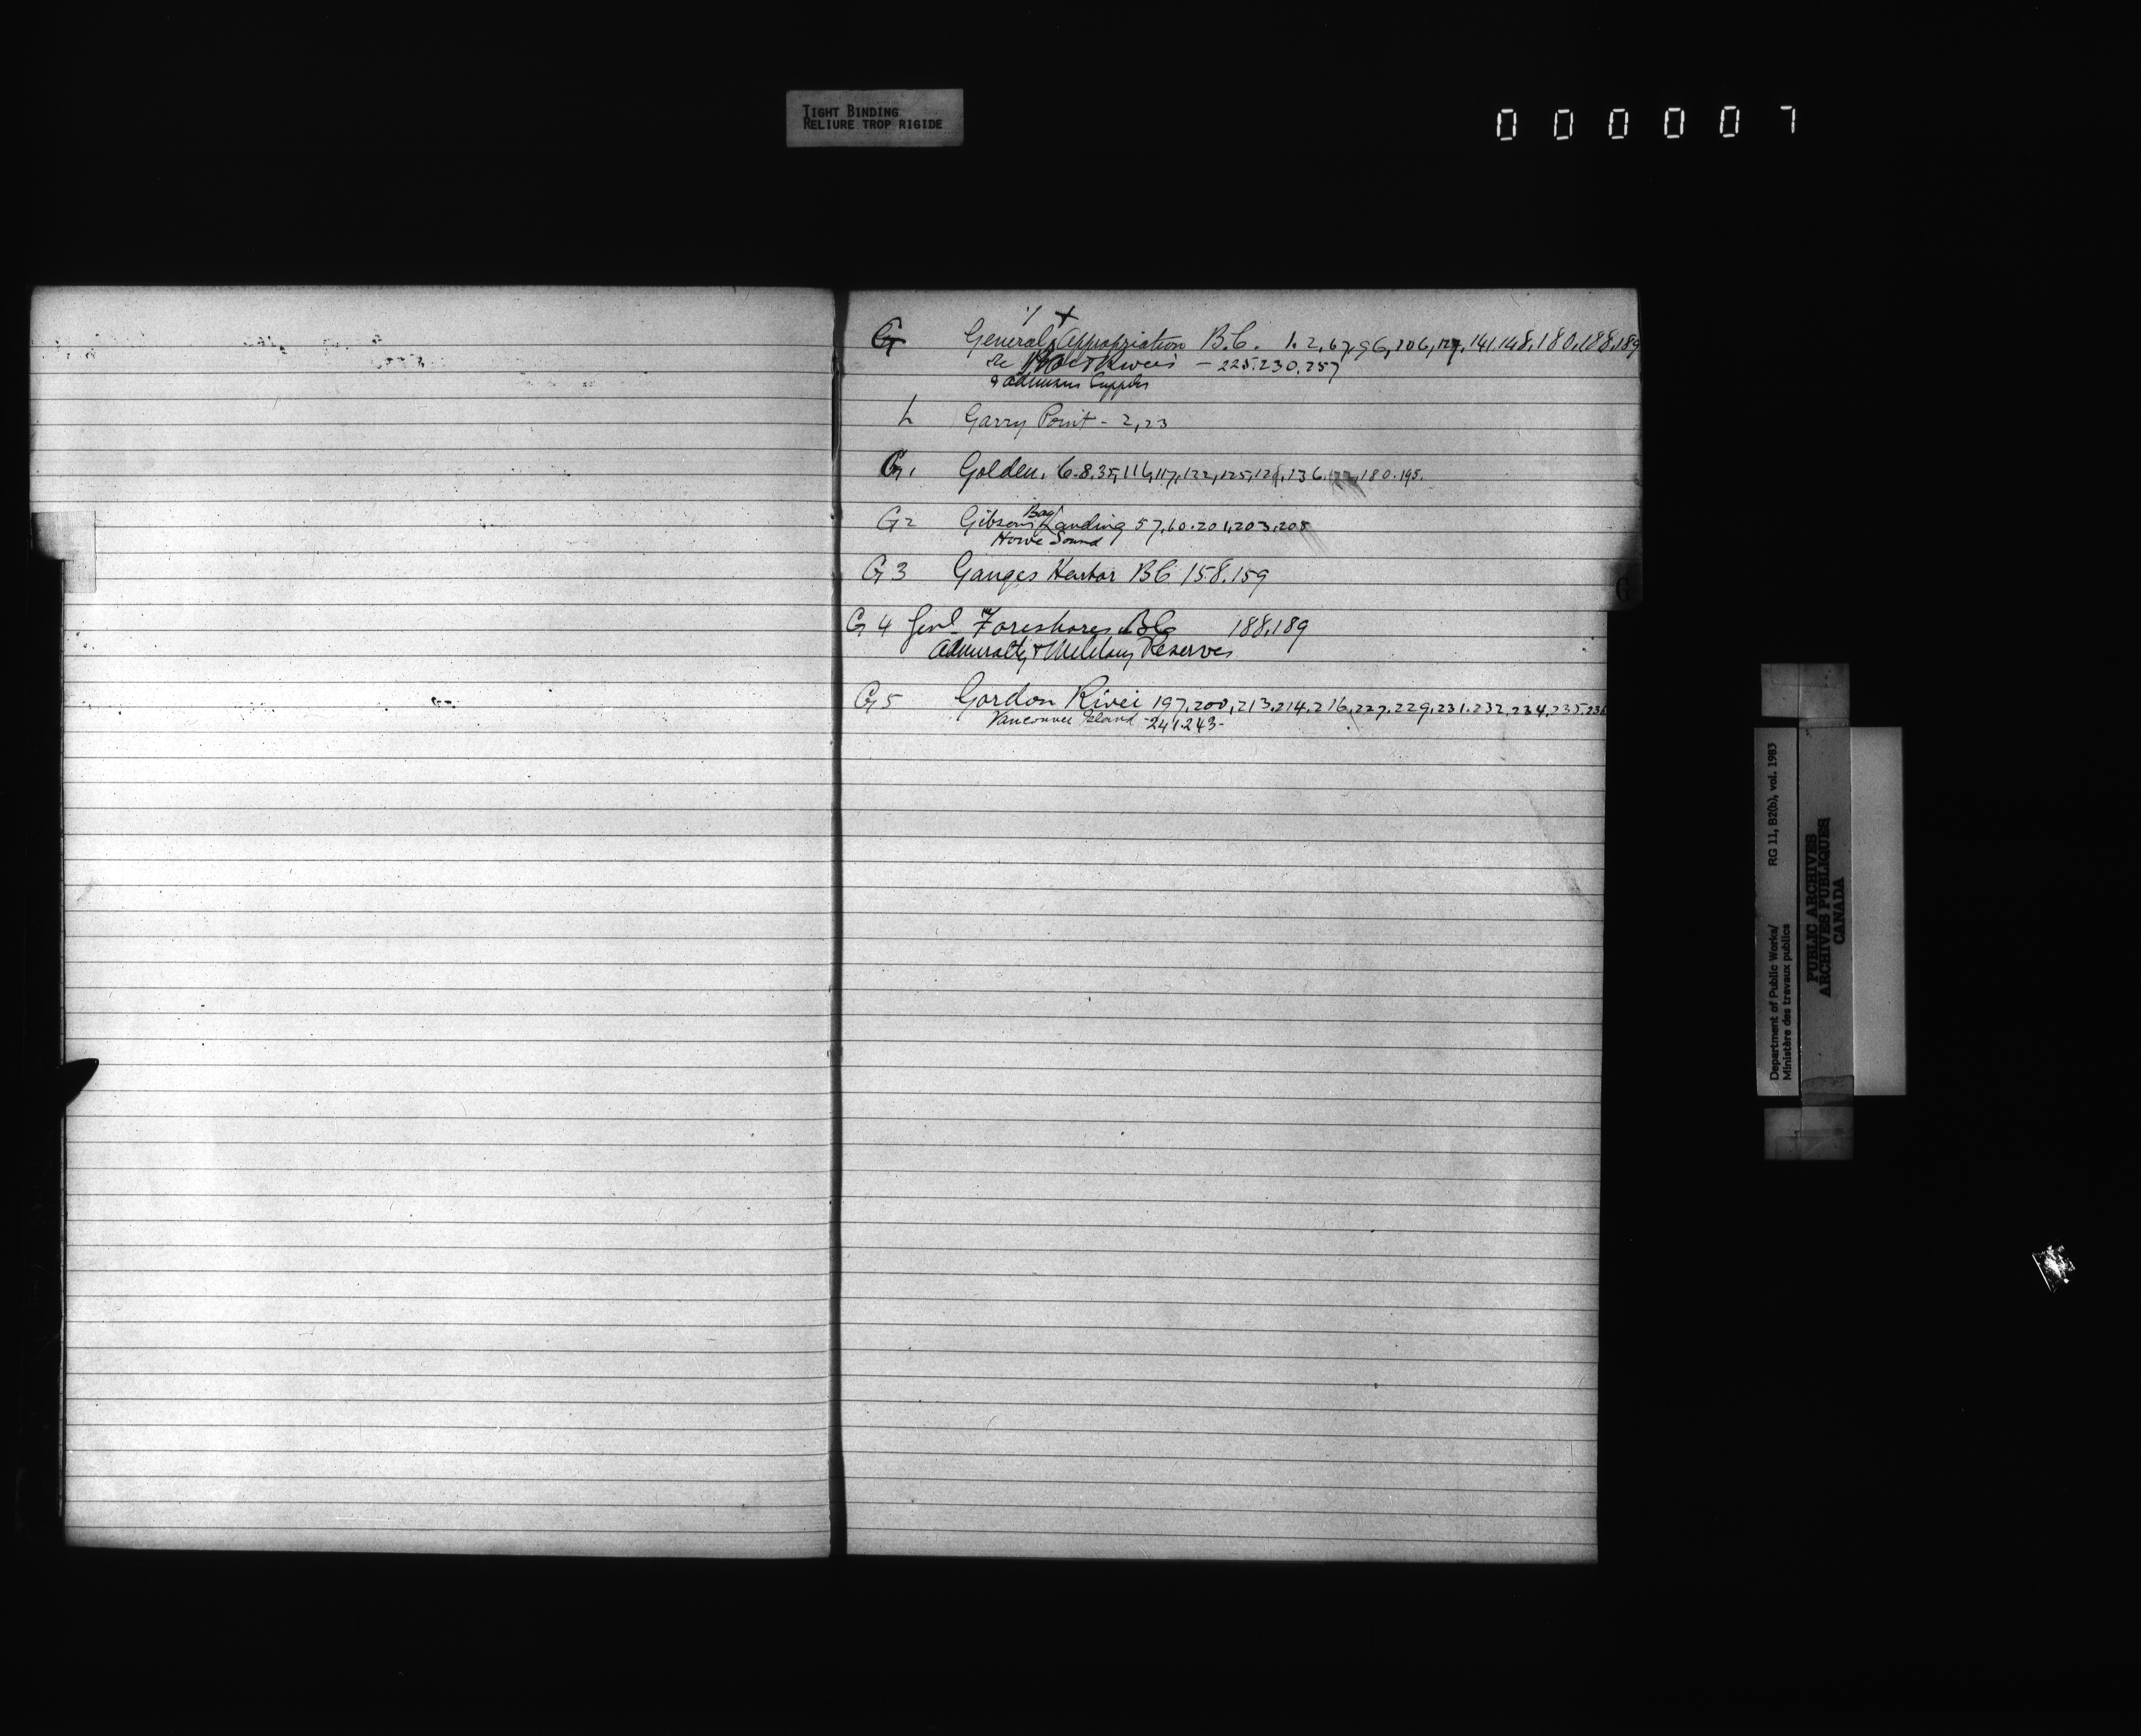 TIGHT BINDING
RELIURE TROP RIGIDE
000007
G General Appropriation B.C. 1.2,67,96,106,127,141.148.180.188.189
re Rivers - 225.230.257
& Supplies
L Garry Point - 2,23
G1 Golden. 6.8.35,116,117,122,125,128,136, 180.195.
G2 Gibsons Bay Landing 57,60.201,203,205
Howe Sound
G3 Ganges Harbor BC 158.159
G4 Genl re Foreshores BC 188,189
Admiralty & Military Reserves
G5 Gordon River 197,200,213.214.216,227.229.231.232,234,235.236
Vancouver Island - 241.243-
G
Department of Public Works/ RG 11, B2(b), vol. 1983
Ministère des travaux publics
PUBLIC ARCHIVES
ARCHIVES PUBLIQUES
CANADA